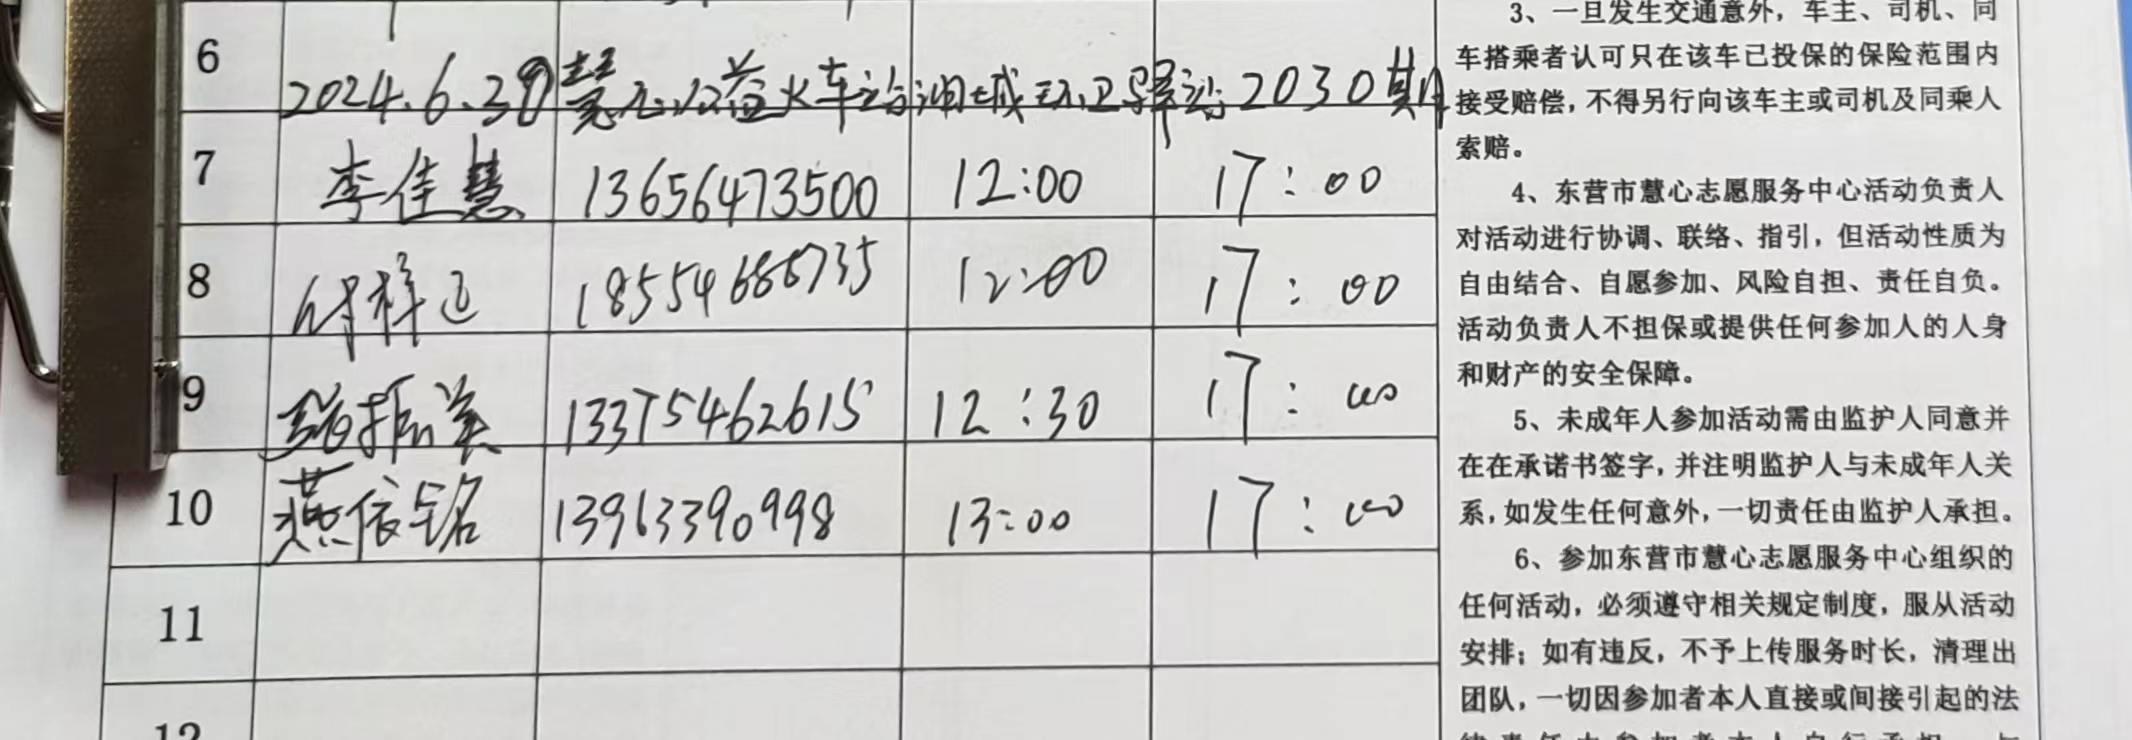 6
2024.6.30慧心公益火车站油城环卫驿站2030期
7 李佳慧 13656473500 12:00 17:00
8 付祥 18554688735 12:00 17:00
9 振美 13375462615 12:30 17:00
10 燕依铭 13963390998 13:00 17:00
11
12
3、一旦发生交通意外，车主、司机、同
车搭乘者认可只在该车已投保的保险范围内
接受赔偿，不得另行向该车主或司机及同乘人
索赔。
4、东营市慧心志愿服务中心活动负责人
对活动进行协调、联络、指引，但活动性质为
自由结合、自愿参加、风险自担、责任自负。
活动负责人不担保或提供任何参加人的人身
和财产的安全保障。
5、未成年人参加活动需由监护人同意并
在在承诺书签字，并注明监护人与未成年人关
系，如发生任何意外，一切责任由监护人承担。
6、参加东营市慧心志愿服务中心组织的
任何活动，必须遵守相关规定制度，服从活动
安排；如有违反，不予上传服务时长，清理出
团队，一切因参加者本人直接或间接引起的法